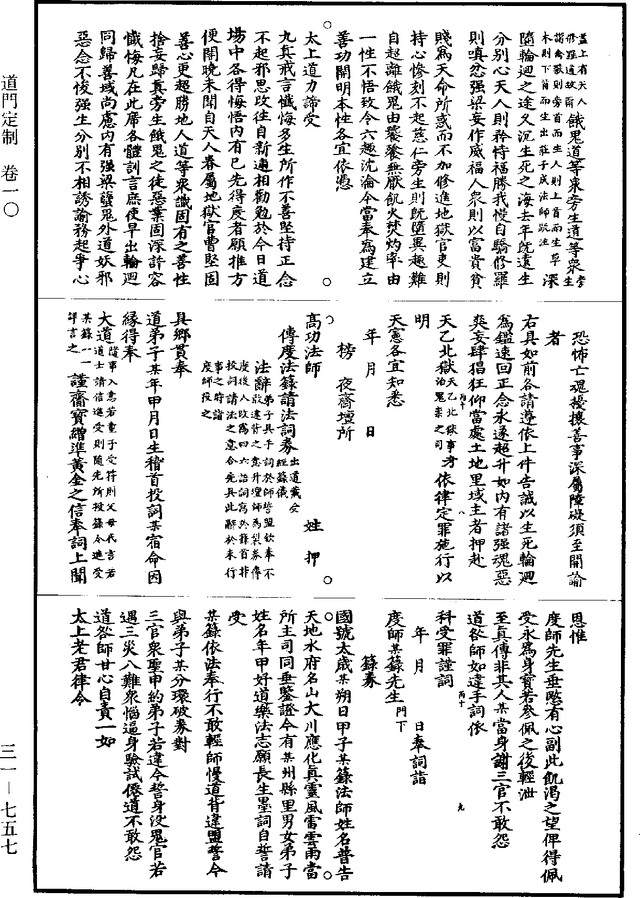 盖上有天人
修羅通按前 餓鬼道等衆旁生道等衆生
謂禽獸則旁首而生人則上首而生草
木則下首而生出莊子成法師疏注 深
隨輪迴之途又沉生死之海去年既遠生
分別心天人則矜特福勝我慢自驕修羅
則嗔忿强梁妄作威福人衆則以富貴貧
賤爲天命所或而不加修進地獄官吏則
持心慘刻不起慈仁旁生則既墮異趣難
自超離餓鬼由饕餮無厭飢火焚灼率由
一性不悟致令六趣沈淪今當奉爲建立
善功開明本性各宜依憑
太上道力諦受
九真戒言懺悔多生所作不善堅持正念
不起邪思改往自新遞相勸勉於今日道
場中各得悔悟内有已先得度者願推方
便開曉未聞自天人眷屬地獄官曹堅固
善心更超勝地人道等衆識固有之善性
捨妄歸真旁生餓鬼之徒惡業固深許容
懺悔凡在此席各體訓言庶使早出輪迴
同歸善域尚慮内有强梁蠱鬼外道妖邪
惡念不悛强生分别不相誘諭務起爭心
恐怖亡魂擾攘善事深屬障礙須至開諭
者
右具如前各請遵依上件告誡以生死輪迴
爲鑑速回正念永遂超升如内有諸强魂惡
爽妄肆猖狂仰當處土地里域主者押赴
天乙北獄天乙北獄專
治鬼祟之司 考依律定罪施行以
明
天憲各宜知悉
年 月 日
榜 夜齋壇所
高功法師 姓 押
傳度法籙請法詞券出道藏受
經籙儀
法辭
具鄉貫奉
道弟子某年甲月日生稽首投詞某宿命因
緣得奉
大道
某籙
謹齎寶繒準黄金之信奉詞上聞
思惟
度師先生垂愍有心副此飢渴之望俾得佩
受永爲身寶若參佩之後輕泄
至真傳非其人某當身謝三官不敢怨
道咎師如違手詞依
科受罪謹詞
年 月 日奉詞詣
度師某籙先生門下
籙券
國號太歲某朔日甲子某籙法師姓名普告
天地水府名山大川應化真靈風雷雲雨當
所主司同垂鑒證今有某州縣里男女弟子
姓名年甲好道樂法志願長生墨詞自誓請
受
某籙依法奉行不敢輕師慢道背違盟誓今
與弟子某分環破券對
三官衆聖申約弟子若違今誓身没鬼官若
遇三災八難衆惱逼身驗試僊道不敢怨
道咎師甘心自責一如
太上老君律令
道門定制 卷一〇
三一—七五七